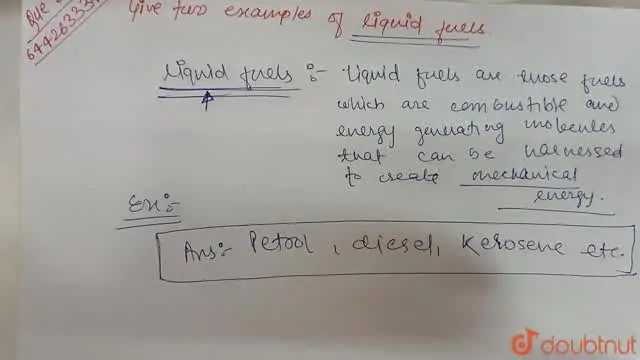 Give two examples of liquid fuels.
liquid fuels :- liquid fuels are those fuels
which are combustible and
energy generating molecules
that can be harnessed
to create mechanical
energy.
Ex:-
Ans:- Petrol, diesel, Kerosene etc.
doubtnut